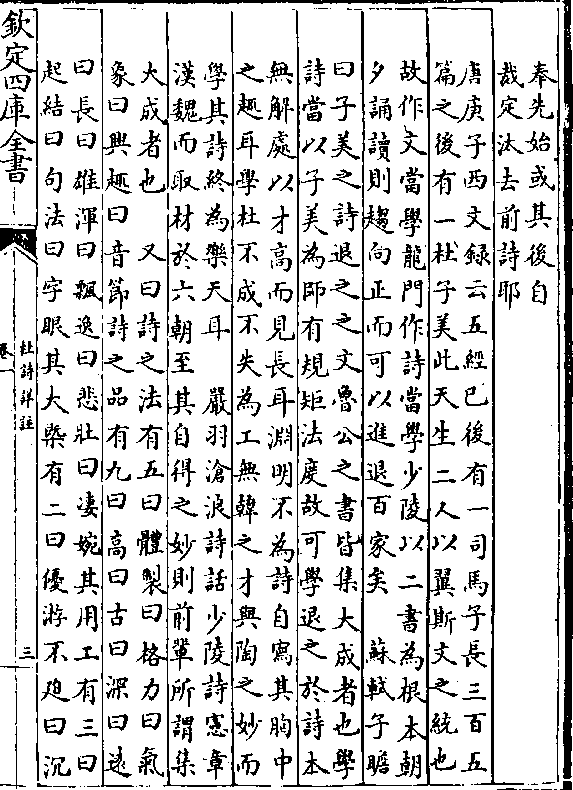 奉先始或其後自
裁定汰去前詩耶
唐庚子西文録云五經已後有一司馬子長三百五
篇之後有一杜子美此天生二人以翼斯文之統也
故作文當學龍門作詩當學少陵以二書為根本朝
夕誦讀則趨向正而可以進退百家矣　蘇軾子瞻
曰子美之詩退之之文魯公之書皆集大成者也學
詩當以子美為師有規矩法度故可學退之於詩本
無解處以才高而見長耳淵明不為詩自寫其胸中
之趣耳學杜不成不失為工無韓之才與陶之妙而
學其詩終為樂天耳　嚴羽滄浪詩話少陵詩憲章
漢魏而取材於六朝至其自得之妙則前輩所謂集
大成者也　又曰詩之法有五曰體製曰格力曰氣
象曰興趣曰音節詩之品有九曰高曰古曰深曰遠
曰長曰雄渾曰飄逸曰悲壯曰凄婉其用工有三曰
起結曰句法曰字眼其大槩有二曰優游不廹曰沉
杜詩詳註
三
卷一
欽定四庫全書